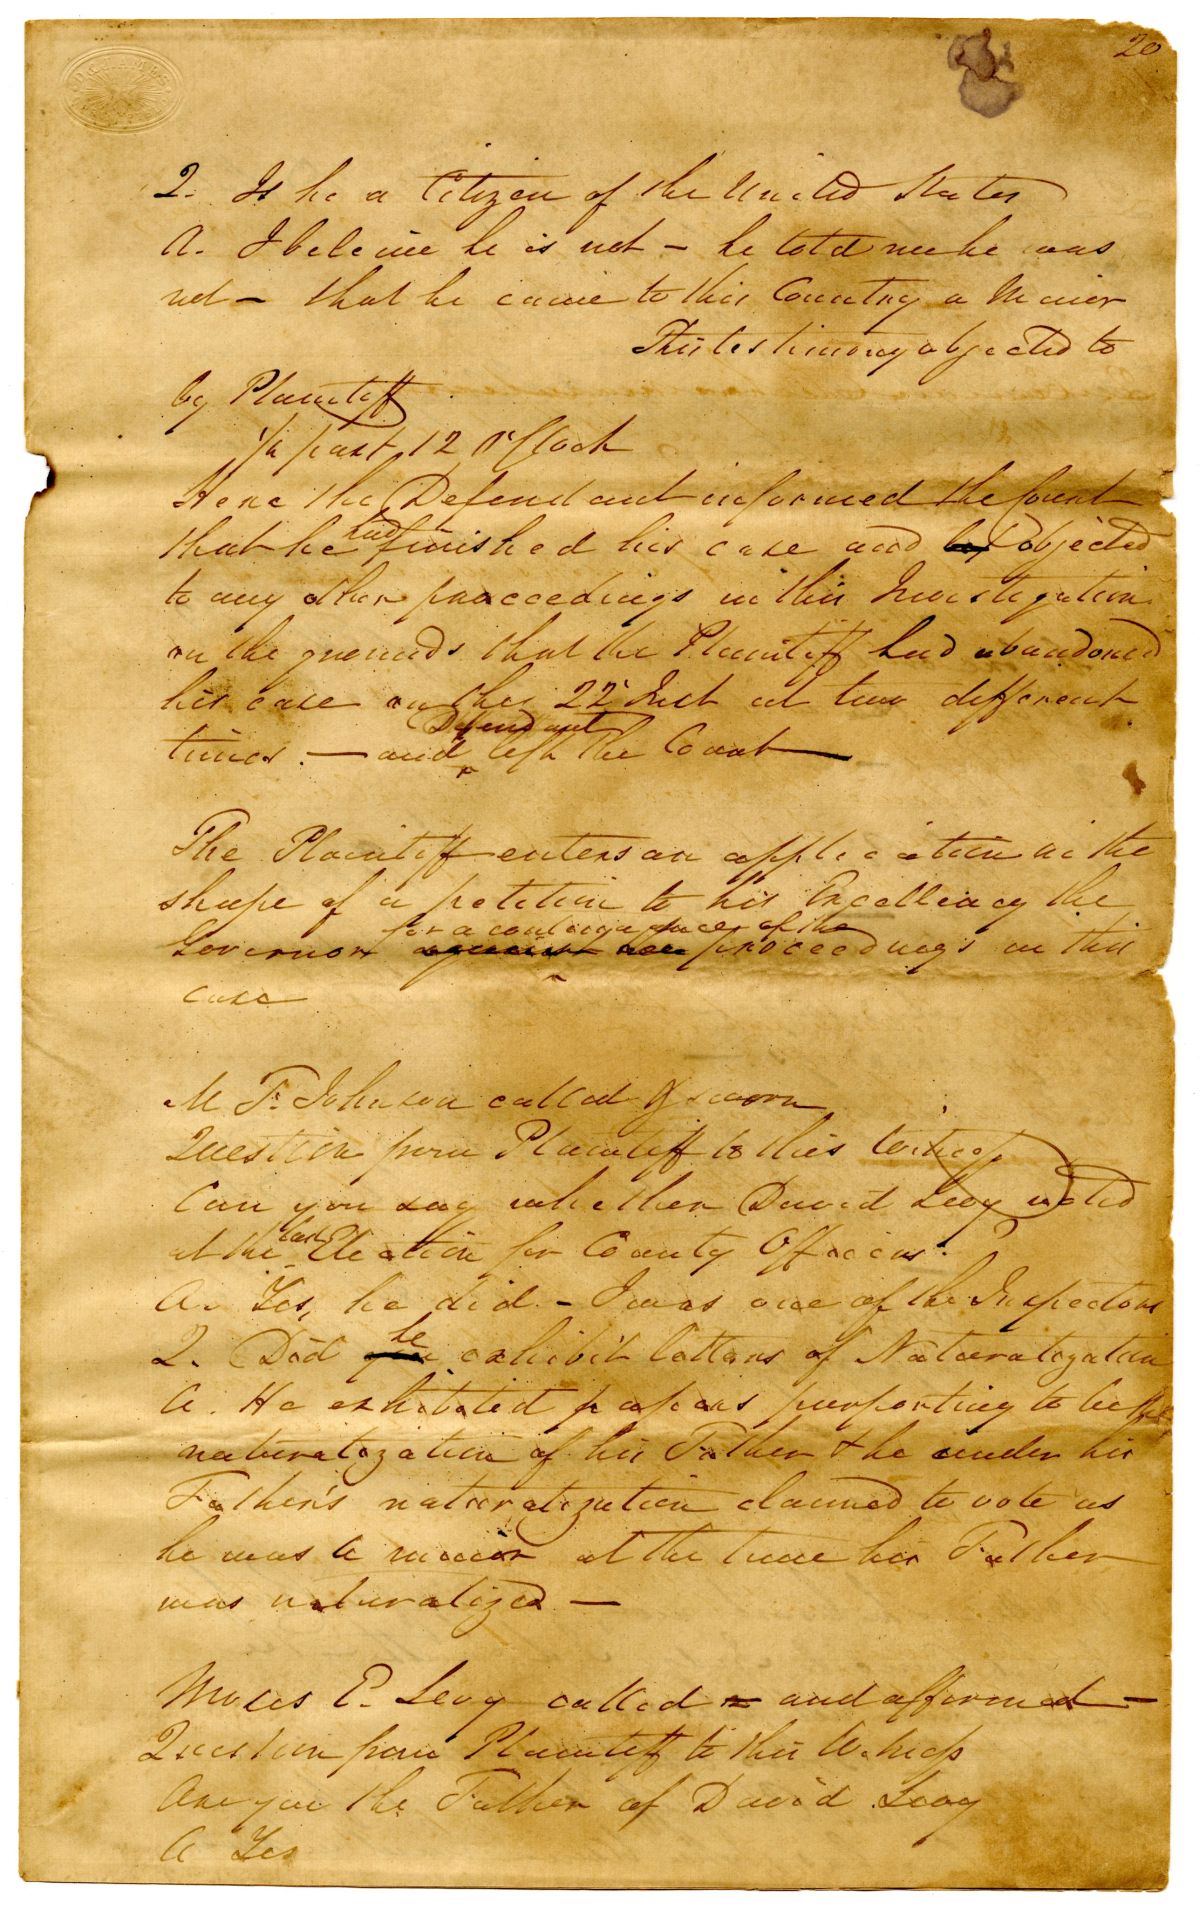 20
Q. Is he a Citizen of the United States
A. I beleive he is not – he told me he was
not – that he came to this Country a Minor
This testimony objected to
by Plaintiff
½ past 12 O'Clock
Here the Defendant informed the Court
that he had finished his case and objected
to any other proceedings in this Investigation
on the grounds that the Plaintiff had abandoned
his case on the 22d Inst at two different
times. — and Defendant left the Court —
The Plaintiff enters an application in the
shape of a petition to his Excellency the
for a continuance of the
Governor against proceedings in this
case
M F. Johnson called & sworn
Question from Plaintiff to this witness
Can you say whether David Levy voted
at the last Election for County Officers?
A. Yes, he did – I was one of the Inspectors
Q. Did he exhibit letters of Naturalization
A. He exhibited papers purporting to be the
naturalization of his Father & he under his
Father's naturalization claimed to vote as
he was a minor at the time his Father
was naturalized —
Moses E. Levy called and affirmed —
Question from Plaintiff to this Witness
Are you the Father of David Levy
A Yes